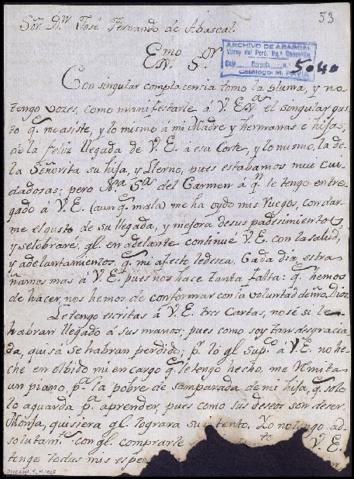 53
Sor. Dn. José Fernando de Abascal.
Exmo Sor.
ARCHIVO DE ABASCAL
5040
Con singular complacencia tomo la pluma, y no
tengo voces, como manifestarle á V.E. el singular gus
to q. me asiste, y lo mismo á mi Madre y hermanas é hijas,
de la feliz llegada de V.E. á esa Corte, y lo mismo, la de
la Señorita su hija, y Yerno, pues estabamos mui cui
dadosas; pero Na. Sa. del Carmen á q. le tengo entre
gado á V.E. (aunq. mala) me ha oydo mis ruegos, con dar
me el gusto de su llegada, y mejora de sus padesimientos,
y selebrare, ql. en adelante continue V.E. con la salud,
y adelantamientos, q. mi afecto le desea. Cada dia estra
ñamos mas á V.E. pues nos hace tanta falta: q. hemos
de hacer, nos hemos de conformar con la voluntad de ña. Dios.
Le tengo escritas á V.E. tres Cartas, no sé si le
habran llegado á sus manos; pues como soy tan desgracia
da, quisá se habran perdido; pr. lo ql. Supco. á V.E. no he
che en olbido mi encargo q. le tengo hecho, me remita
un piano, pa. la pobre desamparada de mi hija, q. solo
lo aguarda pa. aprender, pues como sus deseos son de ser
Monja, quisiera ql. lograra su intento. Yo no tengo ab
solutamte. con ql. comprarle
V.E.
tengo todas mis espe